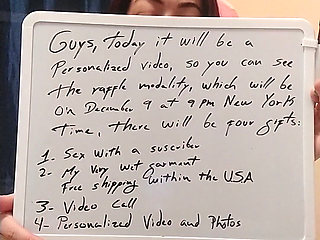 Guys, today it will be a
Personalized video, so you can see
the raffle modality, which will be
On December 9 at 9 pm New York
Time, there will be four gifts:
1- Sex with a suscriber
2- My Very wet garment
Free shipping within the USA
3- Video Call
4- Personalized Video and Photos